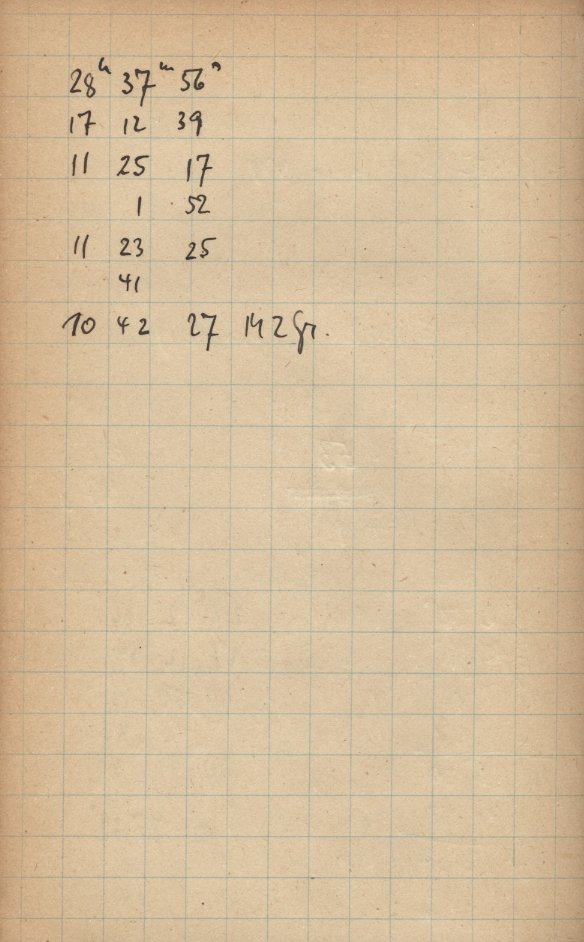 28ʰ 37ᵐ 56ˢ
17 12 39
11 25 17
1 52
11 23 25
41
10 42 27 M Z Gr.